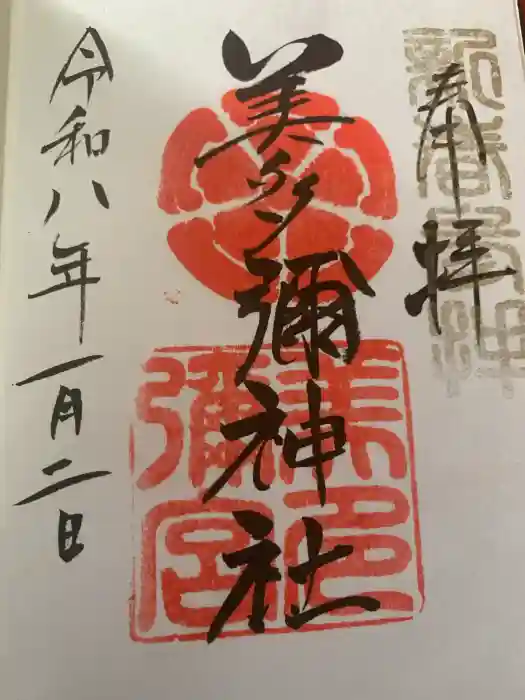 奉拝
新春
美多彌神社
美多
彌宮
令和八年一月二日